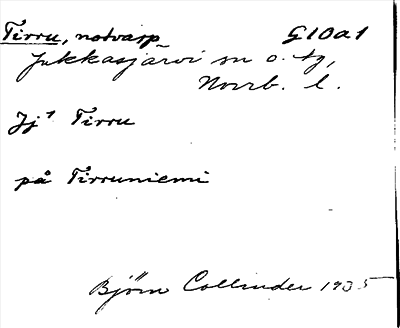 Tirru, notvarp G10a1
Jukkasjärvi sn o. tg,
Norrb. l.
Jj¹ Tirru
på Tirruniemi
Björn Collinder 1935